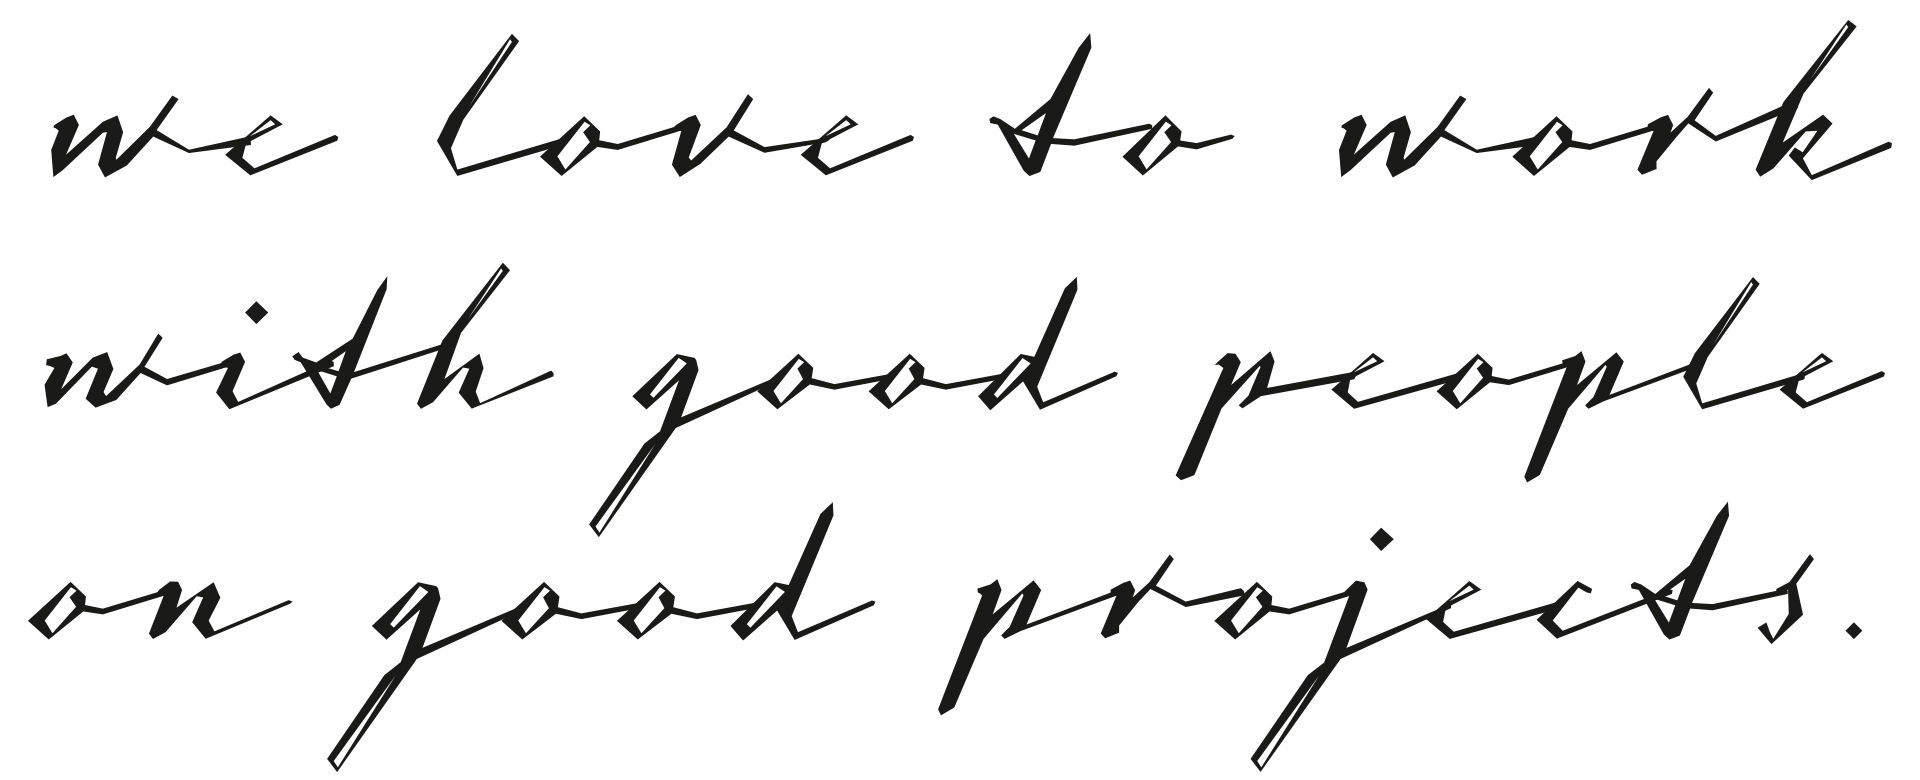 we love to work
with good people
on good projects.